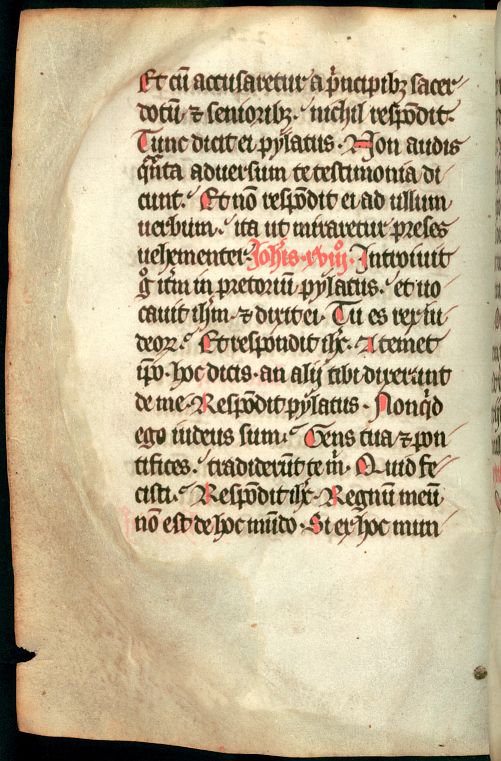 Et cū accusaretur a p̄ncipibꝫ sacer
dotū ⁊ senioribꝫ. nichil respōdit.
Tunc dicit ei pylatus. Non audis
q̄nta aduersum te testimonia di
cunt. Et nō respōdit ei ad ullum
uerbum. ita ut miraretur preses
uehementer. Joh̄is. xviijͦ. Introiuit
gͦ itm̄ in pretoriū pylatus. et uo
cauit ih̄m. ⁊ dixit ei. Tu es rex iu
deoꝝ. Et respondit ih̄c. A temet
ip̄o. hoc dicis. an alij tibi dixerunt
de me. Respōdit pylatus. Nonq̄d
ego iudeus sum. Gens tua ⁊ pon
tifices. tradiderūt te m̄. Quid fe
cisti. Respōdit ih̄c. Regnū meū
nō est de hoc mūdo. Si ex hoc mun